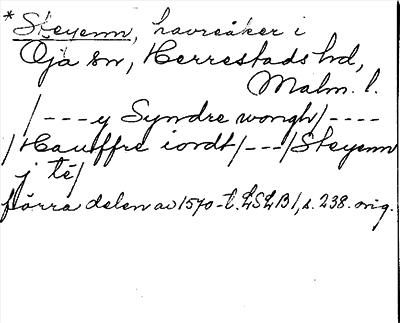 * Skeyenn, havreåker i
Öja sn, Herrestads hd,
Malm. l.
/---y Syndre wongh/----
/Hauffre iordt/---/Skeyenn
j té/
förra delen av 1570-t. LSLB 1, s. 238. orig.